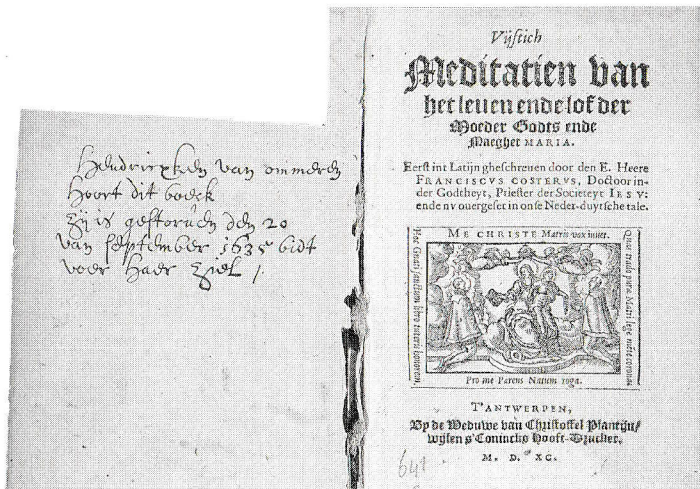 Hendricxken van ommeren
hoort dit boeck
zij is gestoruen den 20
van september 1635 bidt
voer haer ziel /.
Vijftich
Meditatien van
het leuen ende lof der
Moeder Godts ende
Maeghet MARIA.
Eerst int Latijn gheschreuen door den E. Heere
FRANCISCVS COSTERVS, Doctoor in-
der Godtheyt, Priester der Societeyt IESV:
ende nv ouergeset in onse Neder-duytsche tale.
ME CHRISTE Matris vox iuuet.
Pro me Parens Natum roga.
T'ANTWERPEN,
By de Weduwe van Christoffel Plantijn/
wijlen s'Conincks Hooft-Drucker.
M. D. XC.
641